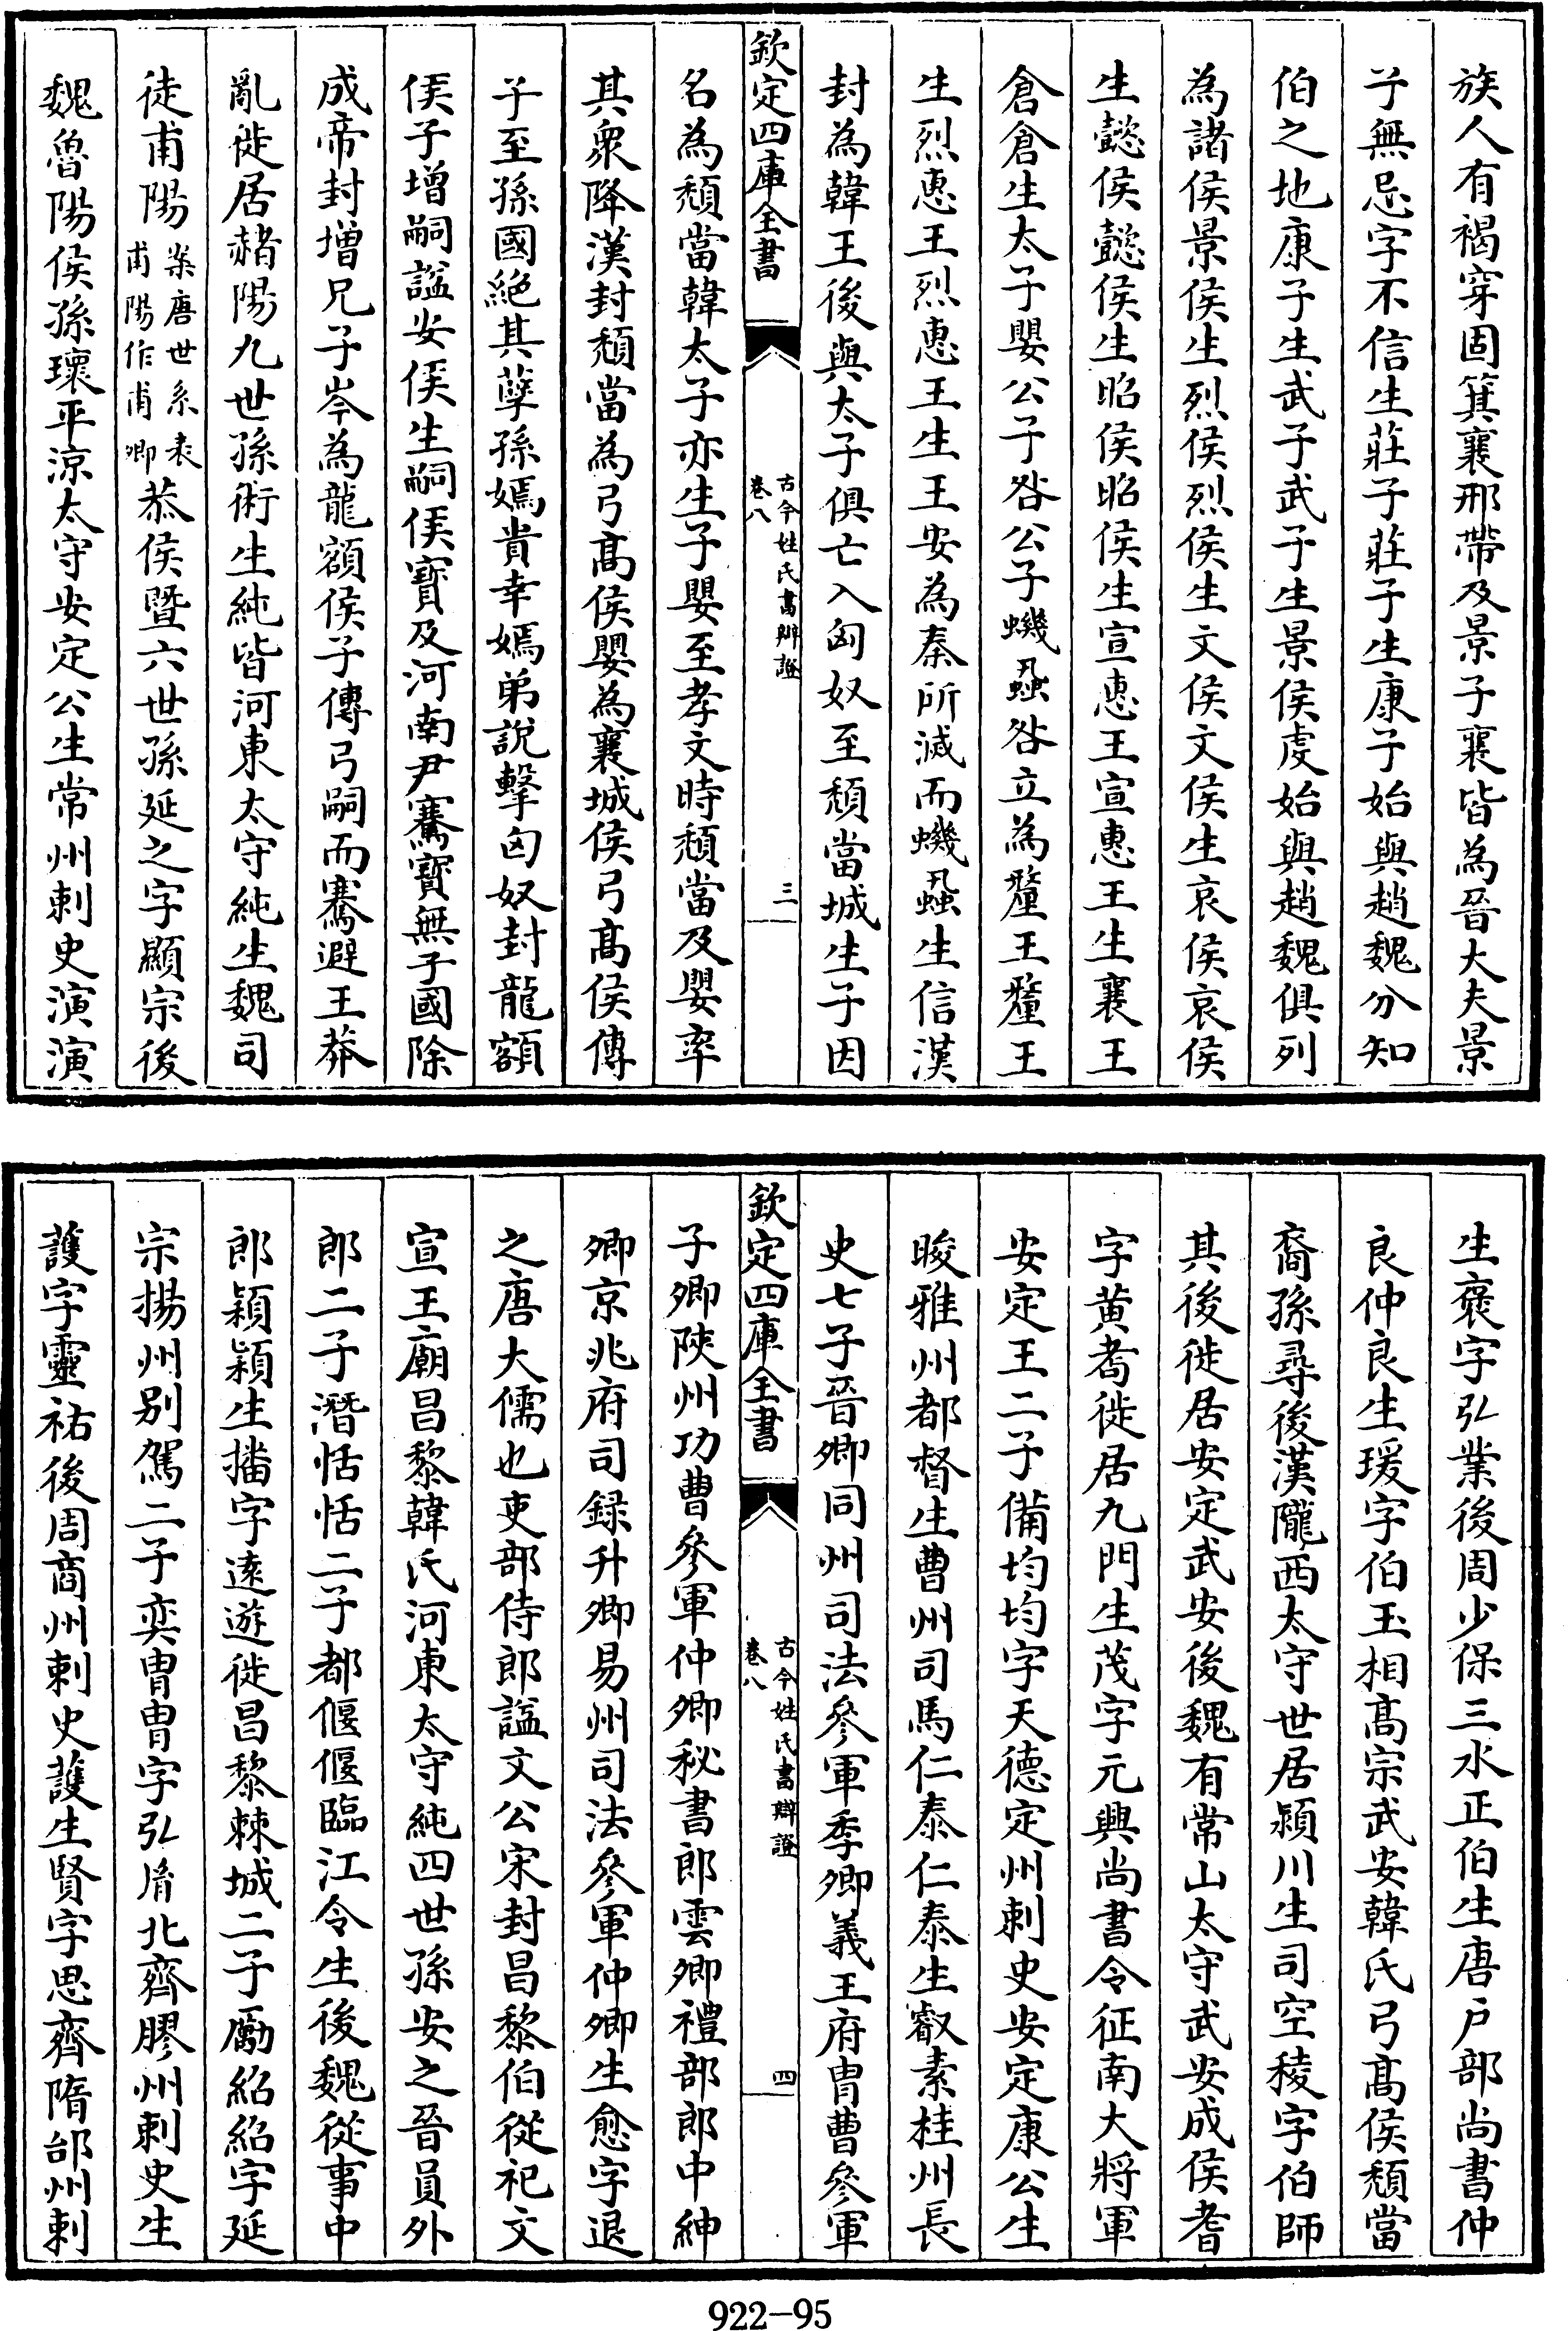 族人有褐穿固箕襄邢帶及景子襄皆為晉大夫景
子無忌字不信生莊子莊子生康子始與趙魏分知
伯之地康子生武子武子生景侯虔始與趙魏俱列
為諸侯景侯生烈侯烈侯生文侯文侯生哀侯哀侯
生懿侯懿侯生昭侯昭侯生宣惠王宣惠王生襄王
倉倉生太子嬰公子咎公子蟣蝨咎立為釐王釐王
生烈惠王烈惠王生王安為秦所滅而蟣蝨生信漢
封為韓王後與太子俱亡入匈奴至頹當城生子因
欽定四庫全書
古今姓氏書辯證
卷八
三
名為頹當韓太子亦生子嬰至孝文時頹當及嬰率
其衆降漢封頹當為弓髙侯嬰為襄城侯弓髙侯傳
子至孫國絶其孽孫嫣貴幸嫣弟說擊匈奴封龍額
侯子增嗣諡安侯生嗣侯寶及河南尹騫寶無子國除
成帝封增兄子岑為龍額侯子傳弓嗣而騫避王莽
亂徙居赭陽九世孫術生純皆河東太守純生魏司
徒甫陽
案唐世系表
甫陽作甫卿
恭侯暨六世孫延之字顯宗後
魏魯陽侯孫瓌平涼太守安定公生常州刺史演演
生褒字弘業後周少保三水正伯生唐戶部尚書仲
良仲良生瑗字伯玉相髙宗武安韓氏弓髙侯頹當
裔孫尋後漢隴西太守世居潁川生司空稜字伯師
其後徙居安定武安後魏有常山太守武安成侯耆
字黄耇徙居九門生茂字元興尚書令征南大將軍
安定王二子備均均字天德定州刺史安定康公生
晙雅州都督生曹州司馬仁泰仁泰生叡素桂州長
史七子晉卿同州司法參軍季卿義王府胄曹參軍
欽定四庫全書
古今姓氏書辯證
卷八
四
子卿陝州功曹參軍仲卿秘書郎雲卿禮部郎中紳
卿京兆府司録升卿易州司法參軍仲卿生愈字退
之唐大儒也吏部侍郎諡文公宋封昌黎伯從祀文
宣王廟昌黎韓氏河東太守純四世孫安之晉員外
郎二子潛恬恬二子都偃偃臨江令生後魏從事中
郎穎穎生播字逺遊徙昌黎棘城二子勵紹紹字延
宗揚州别駕二子奕胄胄字弘胤北齊膠州刺史生
護字靈祐後周商州刺史護生賢字思齊隋邰州刺
922-95